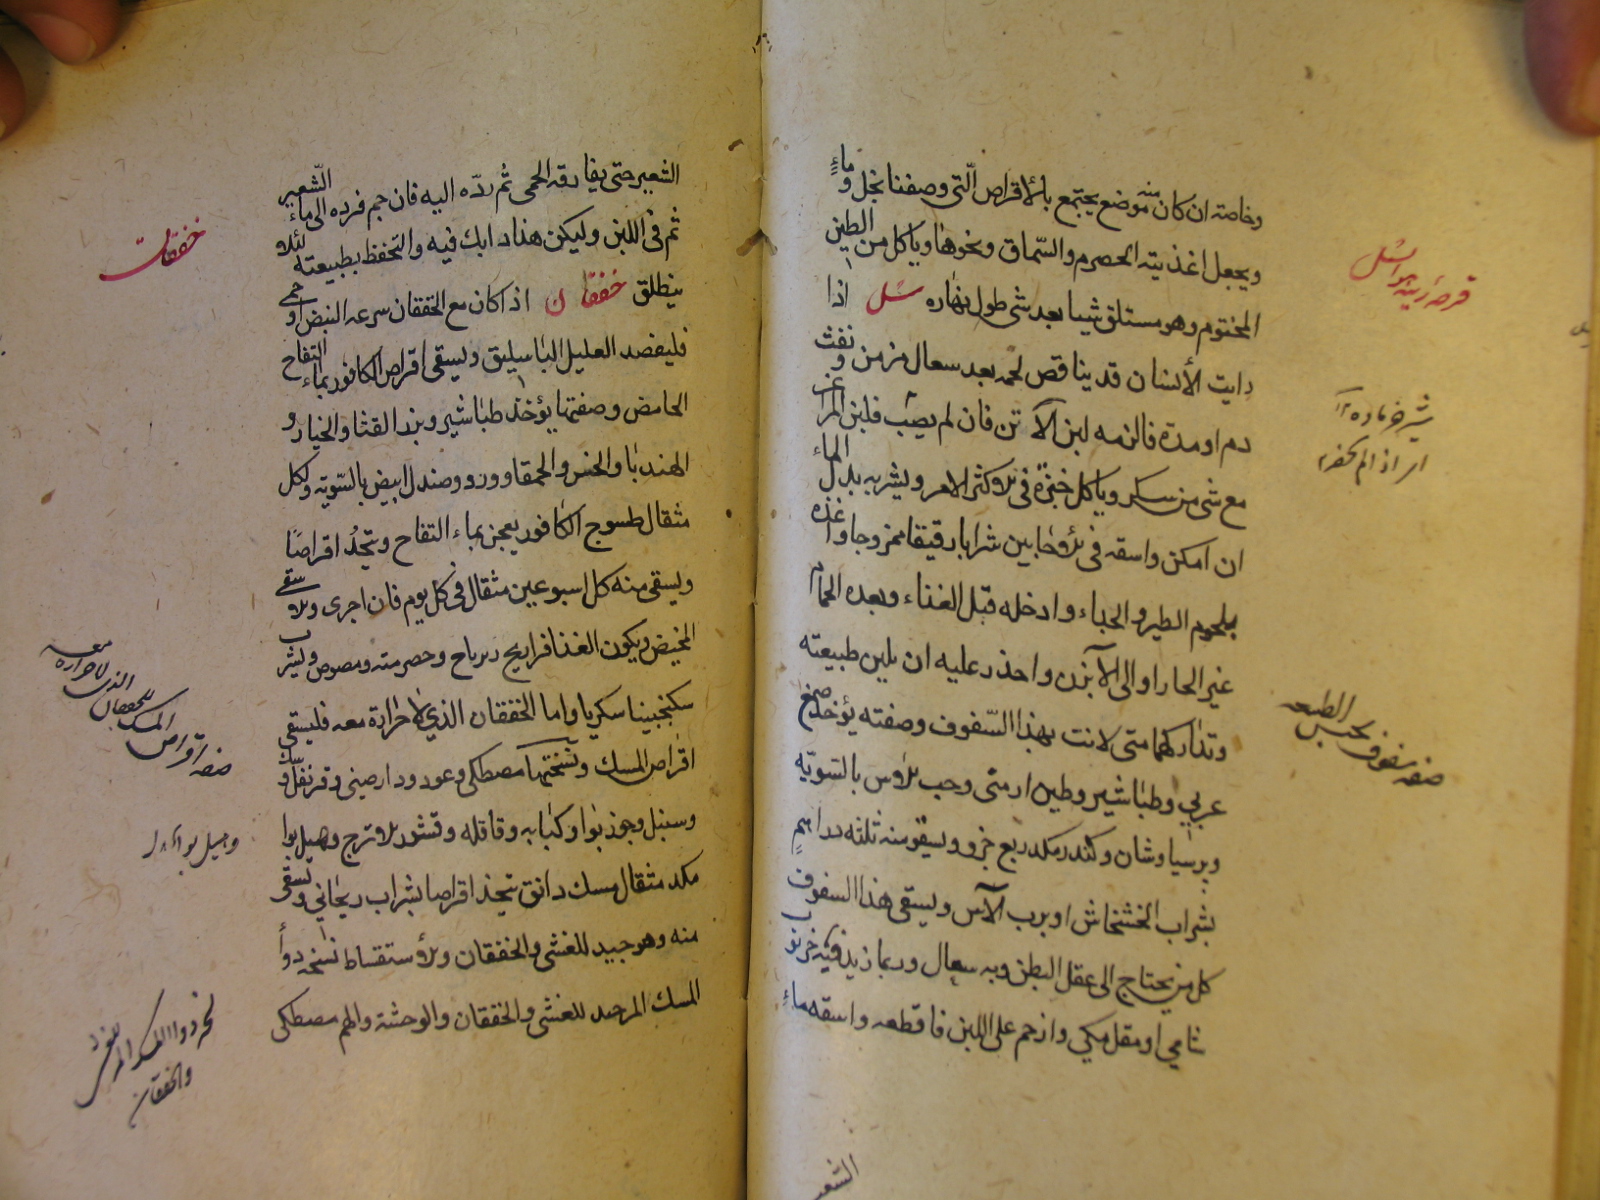 وخاصة ان كان منه موضع يجتمع بالأقراص الّتي وصفنا بخل وماءٍ
ويجعل اغذيته الحصرم والسّماق ونحوها وياكل من الطين
المختوم وهو مستلق شيا بعد شى طول نهاره سُل اذا
رايت الأنسان قد يناقص لحمه بعد سعال مزمن ونفث
دم او مدة فالزمه لبن الآتن فان لم يصب فلبن المراعز
مع شى من سكر وياكل خبزه فى الاكثر الامر ويشربه بدل الماء
ان امكن واسقه فى الاحابين شرابا رقيقا ممزوجا واغذه
بلحوم الطير والجداء وادخله قبل الغذاء وبعده الحمام
غير الحار او الى الآبزن واحذر عليه ان يلين طبيعته
وتداركها متى لانت بهذا السّفوف وصفته يؤخذ صمغ
عربي وطباشير وطين ارمنى وحب الاس بالسّويّة
وبرسياوشان وكندر مكد ربع جزو ويسقى منه ثلثه دراهمٍ
بشراب الخشخاش او برب الآس ويسقى هذا السفوف
كل من يحتاج الى عقل البطن وبه سعال وربما زيد فيه خرنوب
شامي او مقل مكي وان حم على اللبن فاقطعه واسقه ماءٍ
الشعير
سُل
صفه سفوف يحبس الطبيعه
الشعير حتى يفارقه الحمى ثم ردّه اليه فان حم فرده الى ماء الشّعير
ثم فى اللبن وليكن هذا دابك فيه والتحفظ بطبيعته لئلا
ينطلق خفقان اذا كان مع الخفقان سرعه النبض او حمى
فليفصد العليل الباسيليق ويسقى اقراص الكافور بماء التفاح
الحامض وصفتها يؤخذ طباشير وبزر القثا والخيار و
الهندبا والخس والحمقا وورد وصندل ابيض بالسّويّه ولكل
مثقال طسوج الكافور يعجن بماء التفاح ويتخذ اقراصًا
ويسقى منه كل اسبوعين مثقال فى كل يوم فان اجرى والا سقى
المخيض ويكون الغذا فراريج زيرباج وحصرميته ومصوص ويشرب
سكنجبينا سكريا واما الخفقان الذي لا حرارة معه فليسقى
اقراص المسك ونسختها مصطكى وعود ودارصينى وقرنفل وسك
وسنبل وجوزبوا وكبابه وقاقله وقشور الاترج وهيل بوا
مكد مثقال مسك دانق يتخذ اقراصا بشراب ريحاني ويسقى
منه وهو جيد للغشى والخفقان والاستقساط نسخه دوأ
المسك المر جيد للغشى والخفقان والوحشة والهم مصطكى
خفقان
صفه اقراص المسك للخفقان الذى لا حراره معه
وهيل بوا
والخفقان